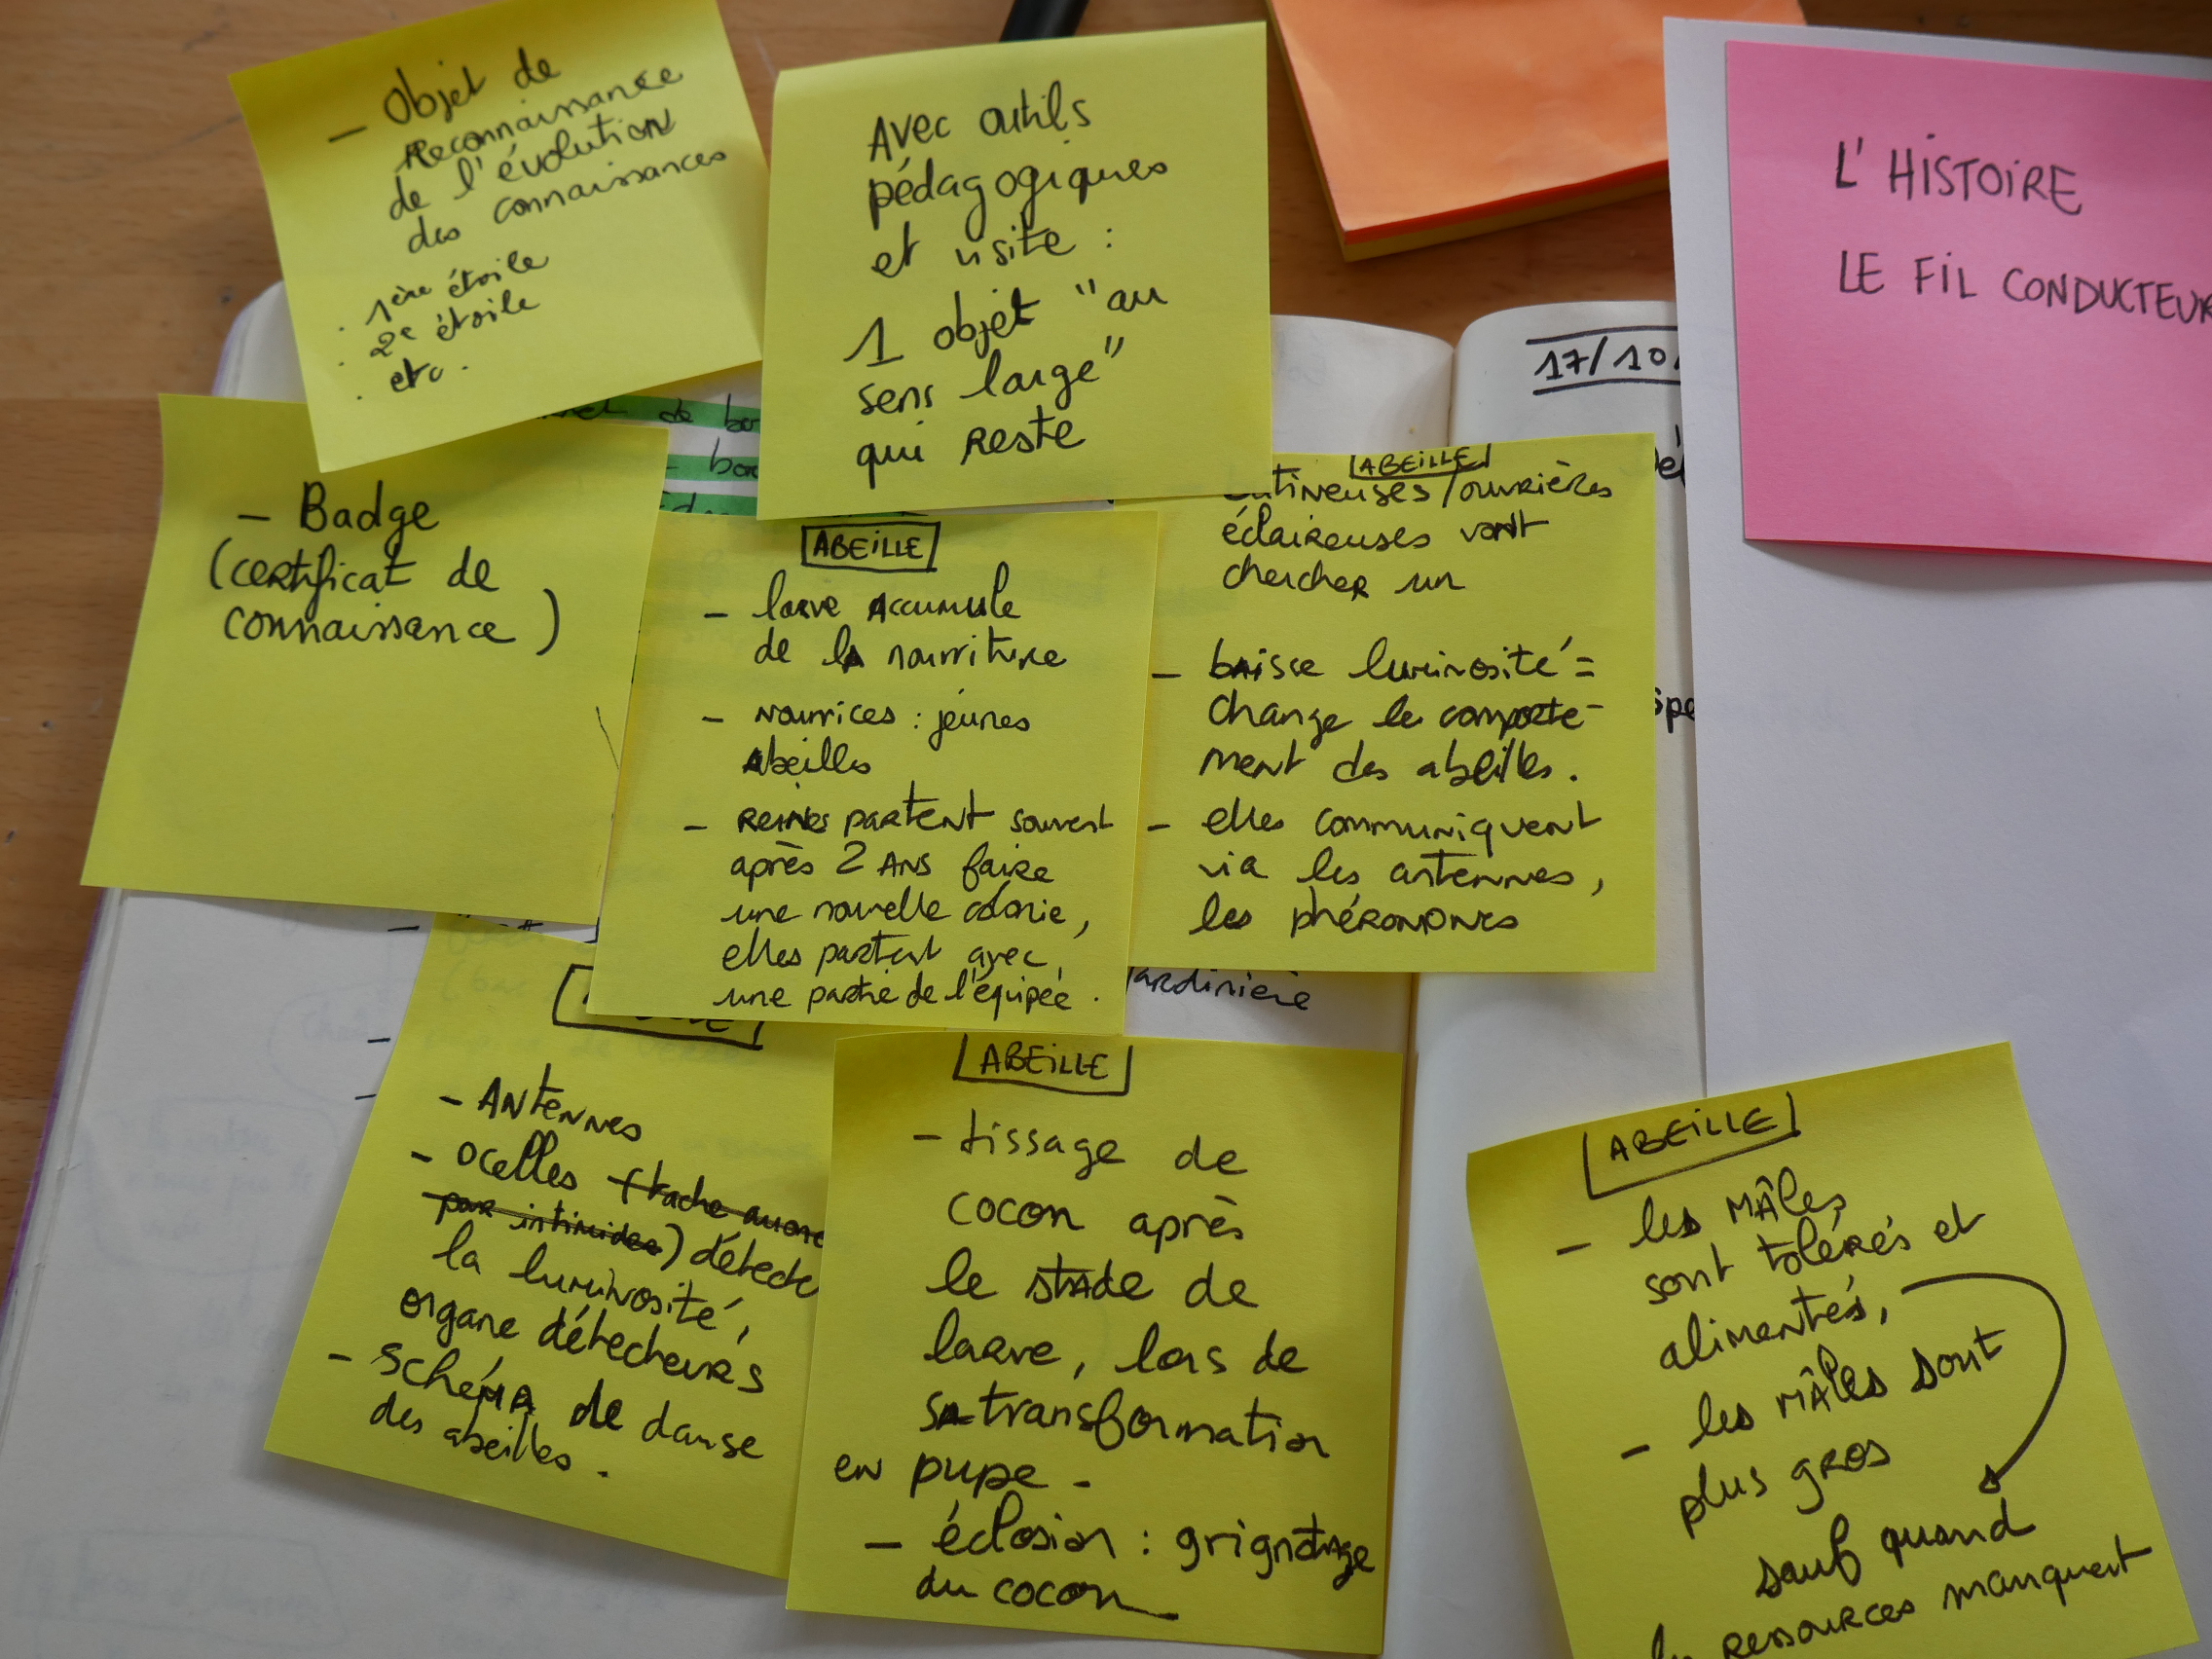 - Objet de
Reconnaissance
de l'évolution
des connaissances
. 1ère étoile
. 2e étoile
. etc.
Avec outils
pédagogiques
et visite :
1 objet "au
sens large"
qui reste
L'HISTOIRE
LE FIL CONDUCTEUR
17/10
de bo
- Badge
(certificat de
connaissance)
ABEILLE
- larve accumule
de la nourriture
- nourrices : jeunes
abeilles
- reines partent souvent
après 2 ans faire
une nouvelle colonie,
elles partent avec
une partie de l'équipée.
ABEILLE
butineuses/ouvrières
éclaireuses vont
chercher un
- baisse luminosité =
change le comporte-
ment des abeilles.
- elles communiquent
via les antennes,
les phéromones
ardinière
- Antennes
- ocelles (tache
pour intimider) détecte
la luminosité,
organe détecteurs
- schéma de danse
des abeilles.
ABEILLE
- tissage de
cocon après
le stade de
larve, lors de
sa transformation
en pupe -
- éclosion : grignotage
du cocon
ABEILLE
- les mâles
sont tolérés et
alimentés,
- les mâles sont
plus gros
sauf quand
ressources manquent